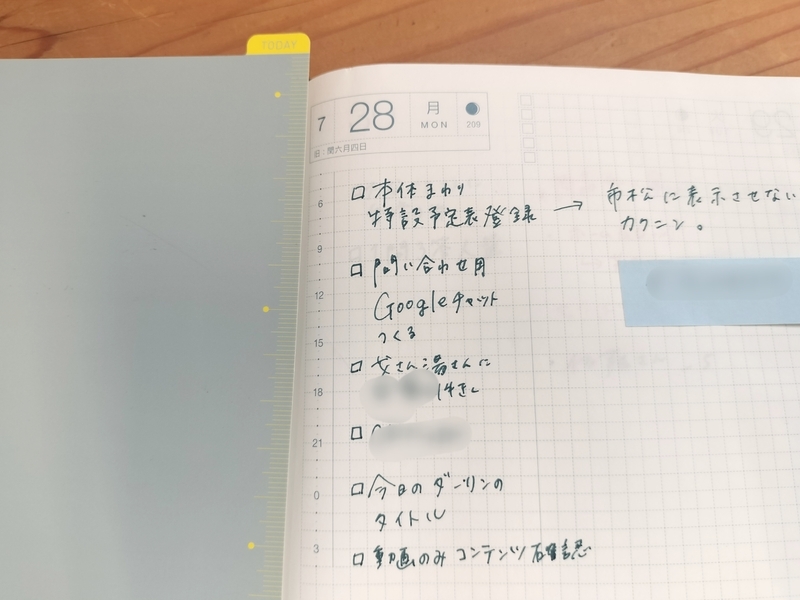 TODAY
7 28 月 MON 209
旧 閏六月四日
6
9
12
15
18
21
0
3
□ 本休まわり
特設予定表登録 → 市松に表示させない
カクニン。
□ 問い合わせ用
Googleチャット
つくる
□ 父さん
□
□ 今日のダーリンの
タイトル
□ 動画のみコンテンツ確認